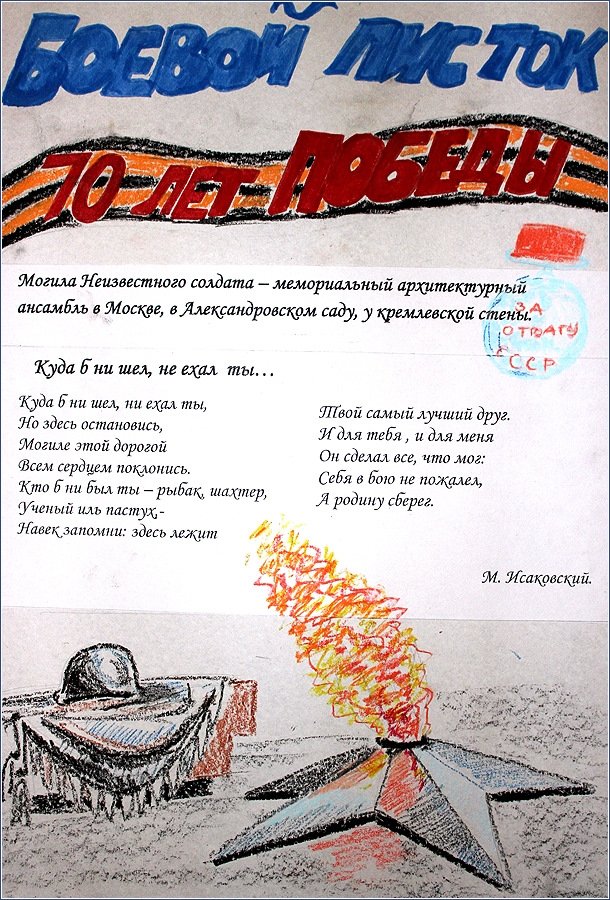 БОЕВОЙ ЛИСТОК
70 ЛЕТ ПОБЕДЫ
Могила Неизвестного солдата – мемориальный архитектурный
ансамбль в Москве, в Александровском саду, у кремлевской стены.
ЗА
ОТВАГУ
СССР
Куда б ни шел, не ехал ты…
Куда б ни шел, ни ехал ты,
Но здесь остановись,
Могиле этой дорогой
Всем сердцем поклонись.
Кто б ни был ты – рыбак, шахтер,
Ученый иль пастух,-
Навек запомни: здесь лежит
Твой самый лучший друг.
И для тебя , и для меня
Он сделал все, что мог:
Себя в бою не пожалел,
А родину сберег.
М. Исаковский.